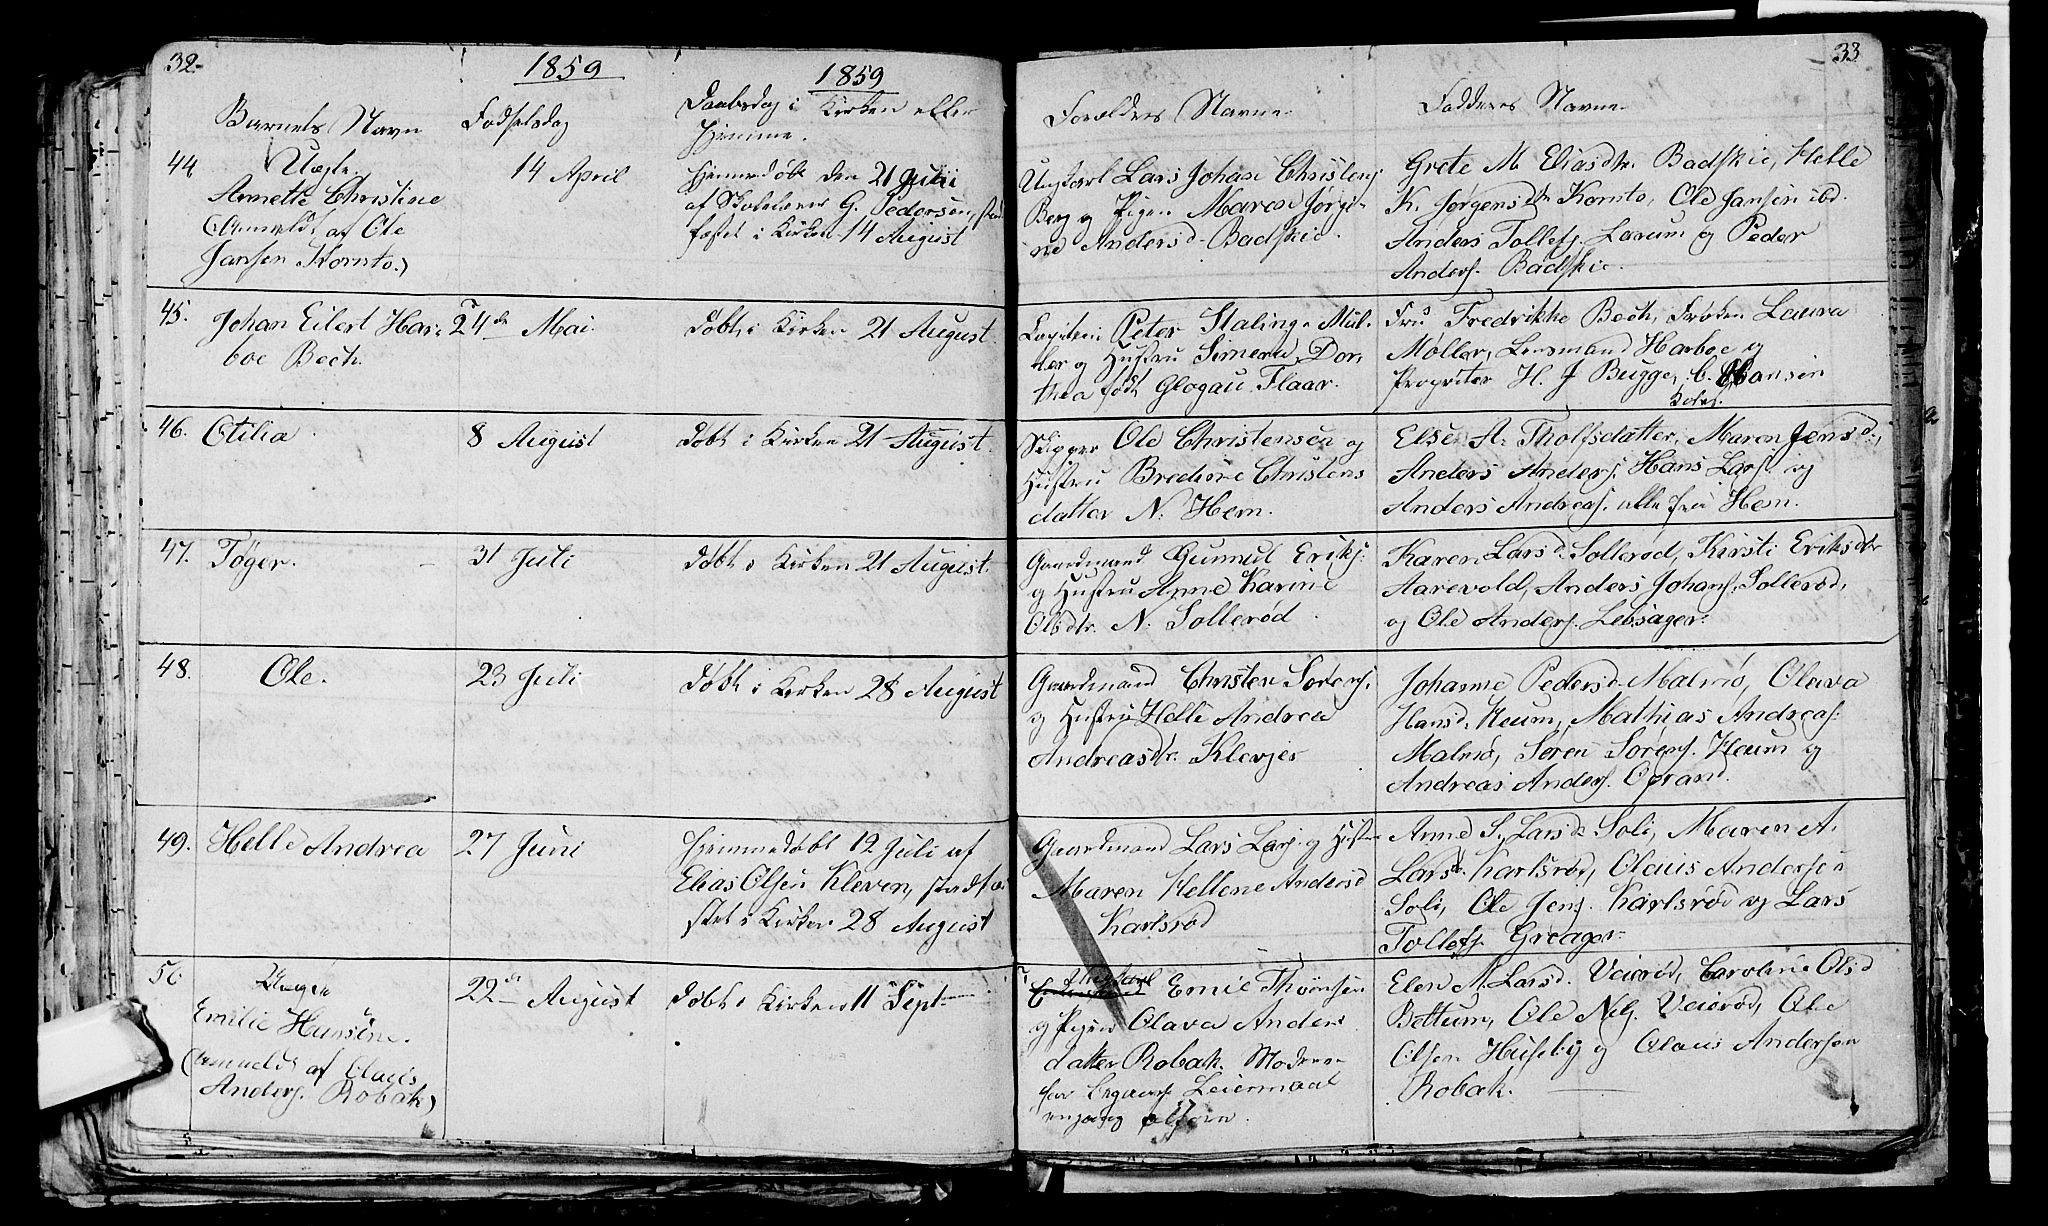 32.
1859
1859
Barnets Navn
Fødselsdag
Daabsdag i Kirken eller
Hjemme.
44
Uægte
Annette Christine
(Anmeldt af Ole
Jansen Kornto.)
14 April
Hjemmedøbt den 21 Juli
af Skolelærer G. Pedersen, stad
fæstet i Kirken 14 August
45.
Johan Eilert Har=
boe Bech.
24de Mai.
Døbt i Kirken 21 August.
46.
Otilia
8 August
Døbt i Kirken 21 August.
47.
Tøger.
31 Juli
Døbt i Kirken 21 August.
48.
Ole.
23 Juli
Døbt i Kirken 28 August
49.
Helle Andrea
27 Juni
Hjemmedøbt 19 Juli af
Elias Olsen Kleven, stadfæ
stet i Kirken 28 August
50
Uægte
Emilie Hansine.
(anmeldt af Olaus
Anders. Robak)
22de August
Døbt i Kirken 11 Sept
33
Forældres Navne
Fadderes Navne
Ungkarl Lars Johan Christens.
Berg og Pigen Maren Jørgi-
ne Andersd. Badskie.
Grete M Eliasdtr. Badskie, Helle
K. Jørgensdtr Kornto, Ole Jansen ibd.
Anders Tollefs. Larum og Peder
Anders. Badskie.
Peter Staling Mül-
ler og Hustru Simene Dor,
thea født Glogau Flaar.
Fru Fredrikke Bech, Frøken Laura
Møller, Lensmand Harboe og
Propritær H. J Bugge, C. Hansen
Kolas.
Skipper Ole Christensen og
Hustru Bredine Christens
datter N. Hem.
Else A. Tholfsdatter, Maren Jensd.,
Anders Anders. Hans Lars. og
Anders Andreas. alle fra Hem.
Gaardmand Gunnul Eriks.
og Hustru Anne Karine
Olsdtr. N. Sollerød.
Karen Larsd. Sollerød, Kirsti Eriksdtr
Aarevold, Anders Johans. Sollerød,
og Ole Anders. Lebsager.
Gaardmand Christen Sørens.
og Hustru Helle Andrea
Andreasdtr. Klevjer
Johanne Pedersd. Malmø, Olava
Hansd. Heum, Mathias Andreas.
Malmø, Søren Sørens. Heum og
Andreas Anders. Opran.
Gaardmand Lars Lars. og Hustru
Maren Hellene Andersd
Karlsrød
Anne S. Larsd. Soli, Maren A.
Larsd. Karlsrød, Olaus Andersen
Soli, Ole Jens. Karlsrød og Lars
Tollefs. Greager.
Ungkarl
Emil Thomsen
og Pigen Olava Anders
datter Robak. Moderen
har begaaet Leiermaal
engang alfren.
Elen N. Larsd. Veierød, Caroline Olsd
Bettum, Ole Nils. Veierød, Ole
Olsen Huseby og Olaus Andersen
Robak.